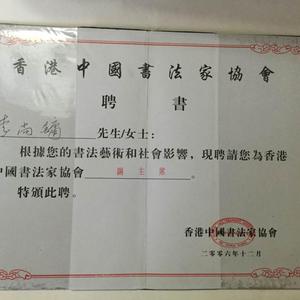 香港中國書法家協會
聘書
李尚鏞 先生/女士:
根據您的書法藝術和社會影響，現聘請您為香港
中國書法家協會 副主席 。
特頒此聘。
香港中國書法家協會
二零零六年十二月